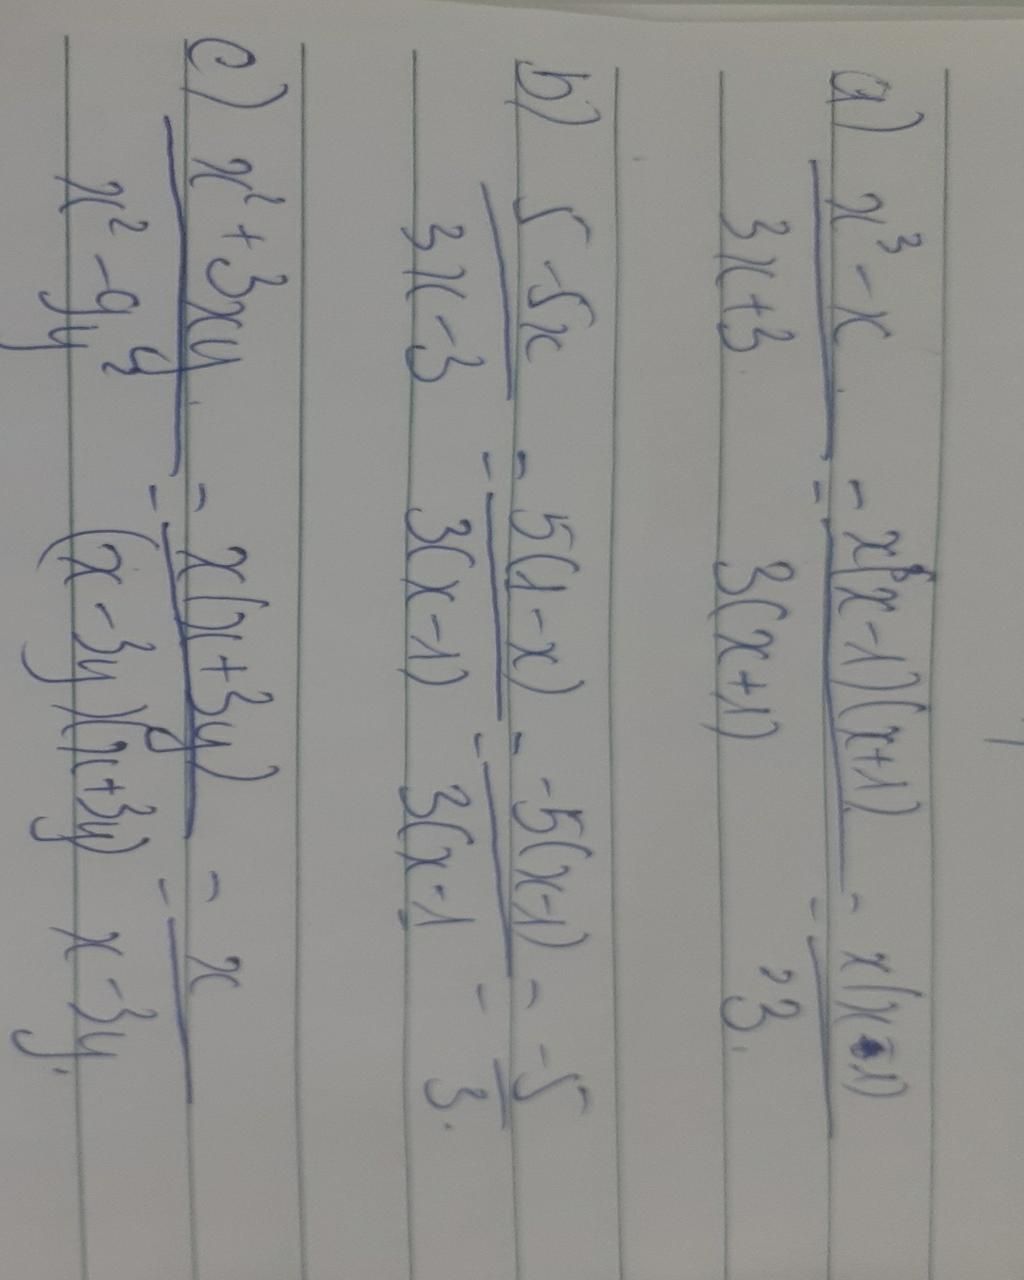 a) x³ - x / 3x + 3 = x(x - 1)(x + 1) / 3(x + 1) = x(x - 1) / 3.
b) 5 - 5x / 3x - 3 = 5(1 - x) / 3(x - 1) = -5(x - 1) / 3(x - 1 = -5 / 3.
c) x² + 3xy / x² - 9y² = x(x + 3y) / (x - 3y)(x + 3y) = x / x - 3y.